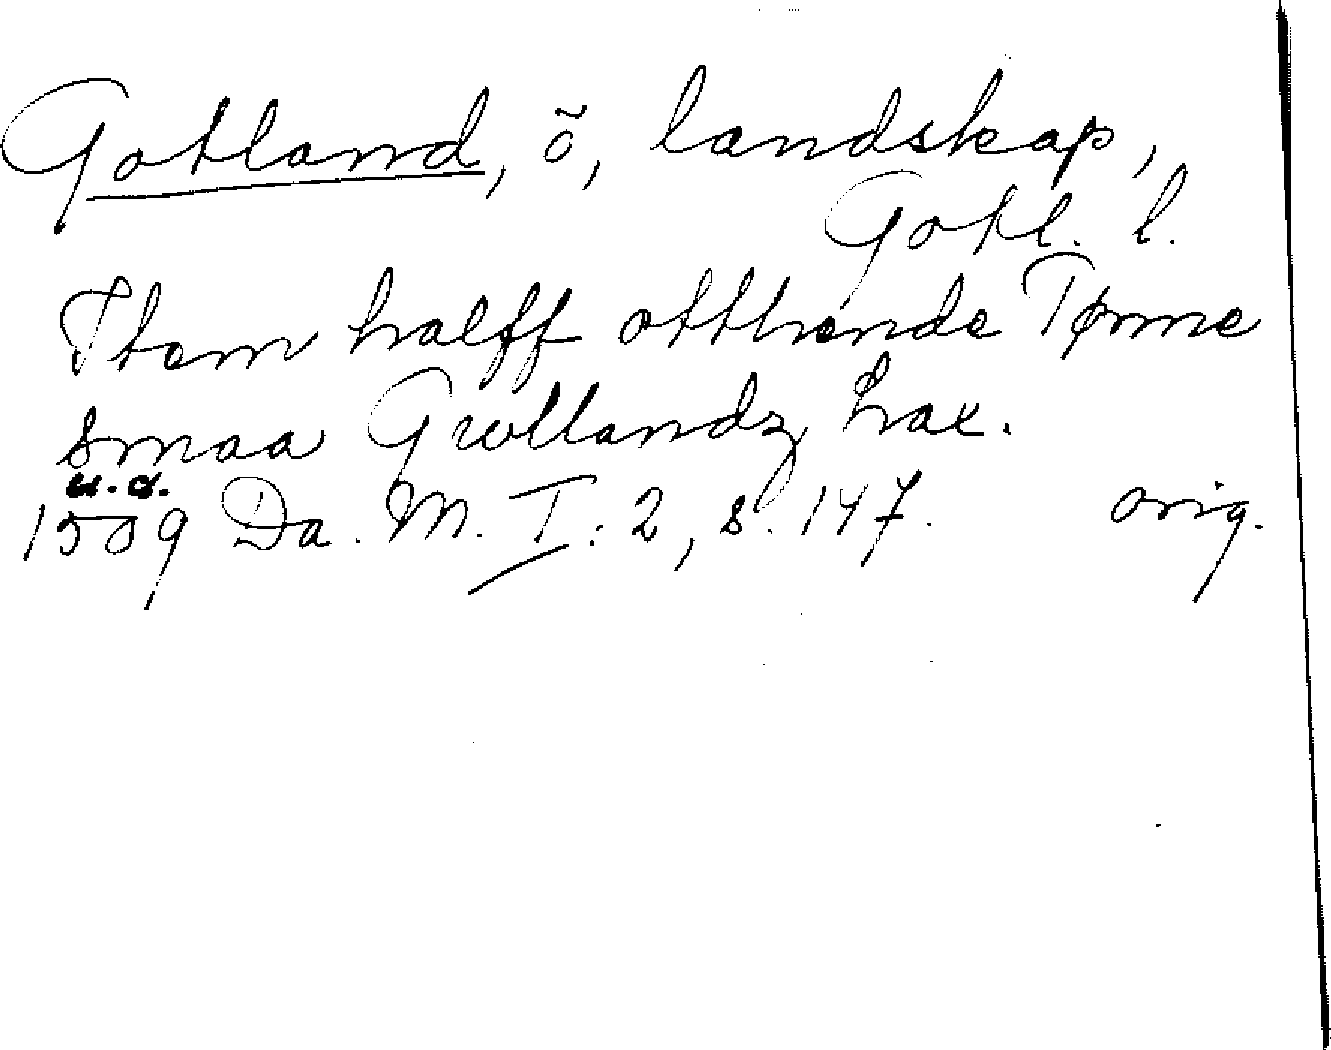 Gotland, ö, landskap,
Gotl. l.
Jtem halff otthende Tønne
smaa Gwllandz hax.
u.d.
1509 Da. M. I: 2, s. 147. orig.